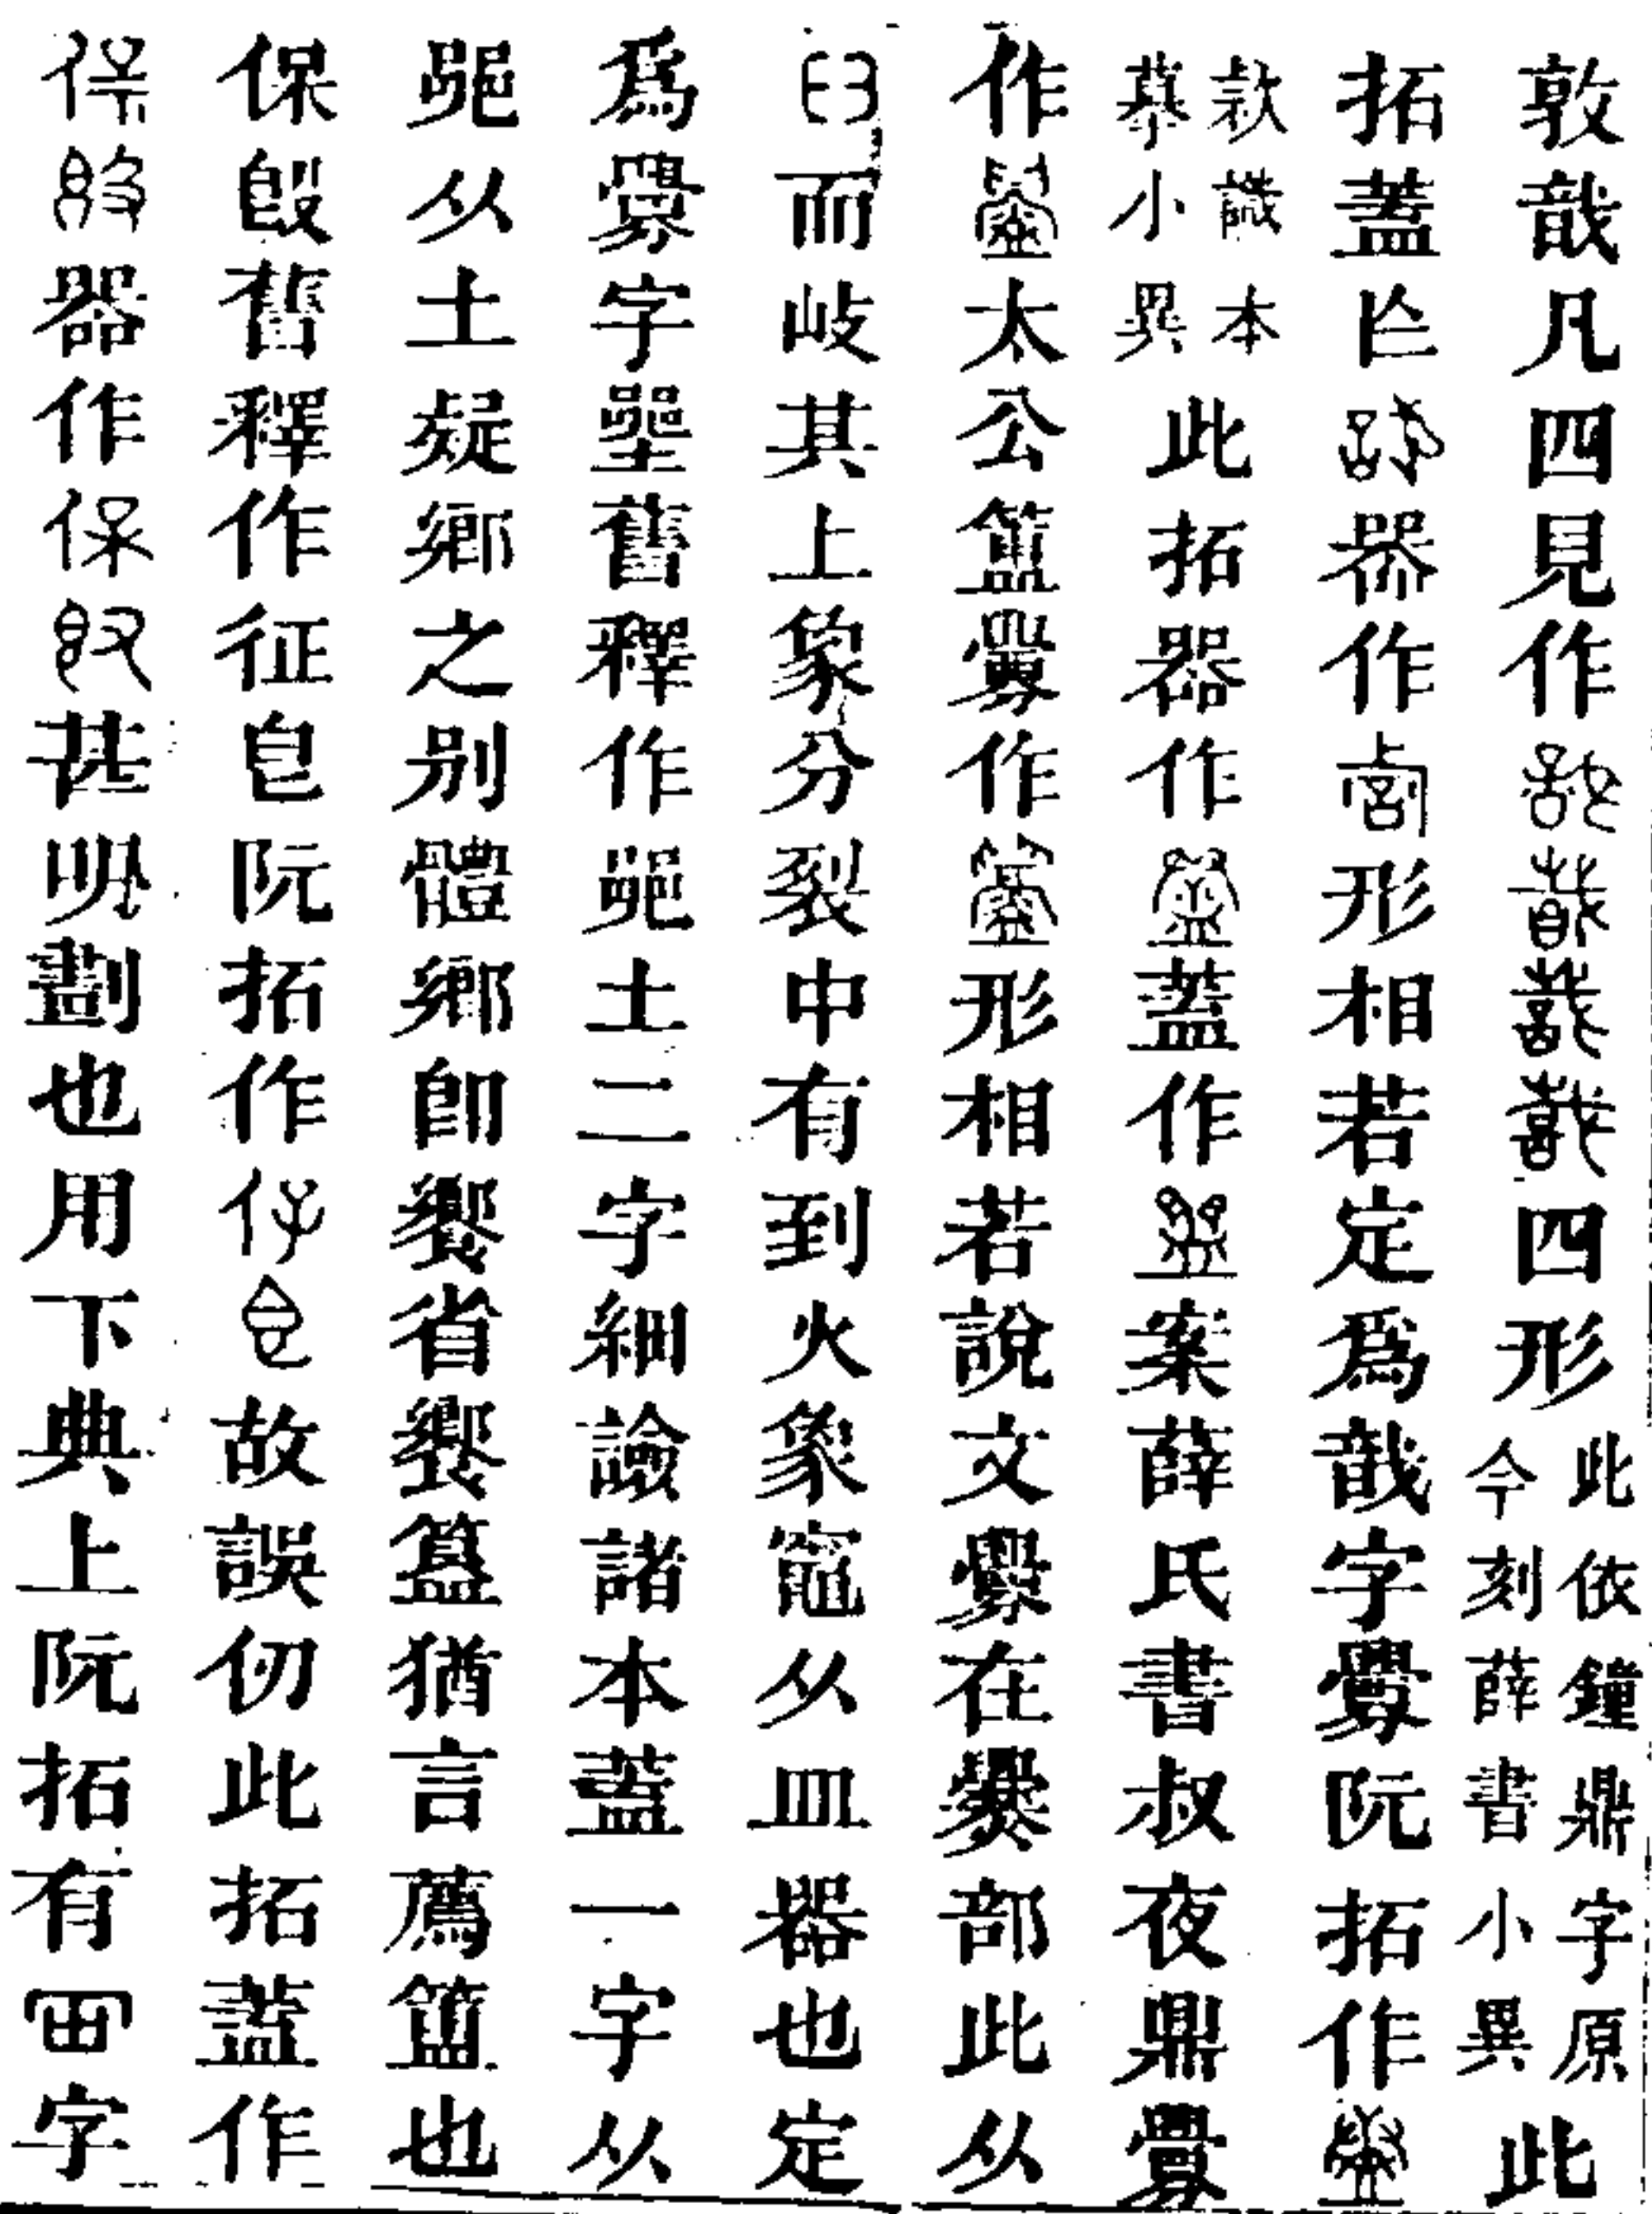 敦戠凡四見作四形此依鐘鼎字原今刻薛書小異此
拓蓋亾器作形相若定爲戠字釁阮拓作
款識本摹小異此拓器作蓋作案薛氏書叔夜鼎釁
作太公簠釁作形相若說文釁在爨部此从
𦥑而岐其上象分裂中有到火象竈从皿器也定
爲釁字壄舊釋作㗊土二字細諗諸本蓋一字从
从土疑鄉之别體鄉卽饗省饗簋猶言薦簠也
保𣪘舊釋作征皀阮拓作故誤仞此拓蓋作
器作甚明劃也用下典上阮拓有字